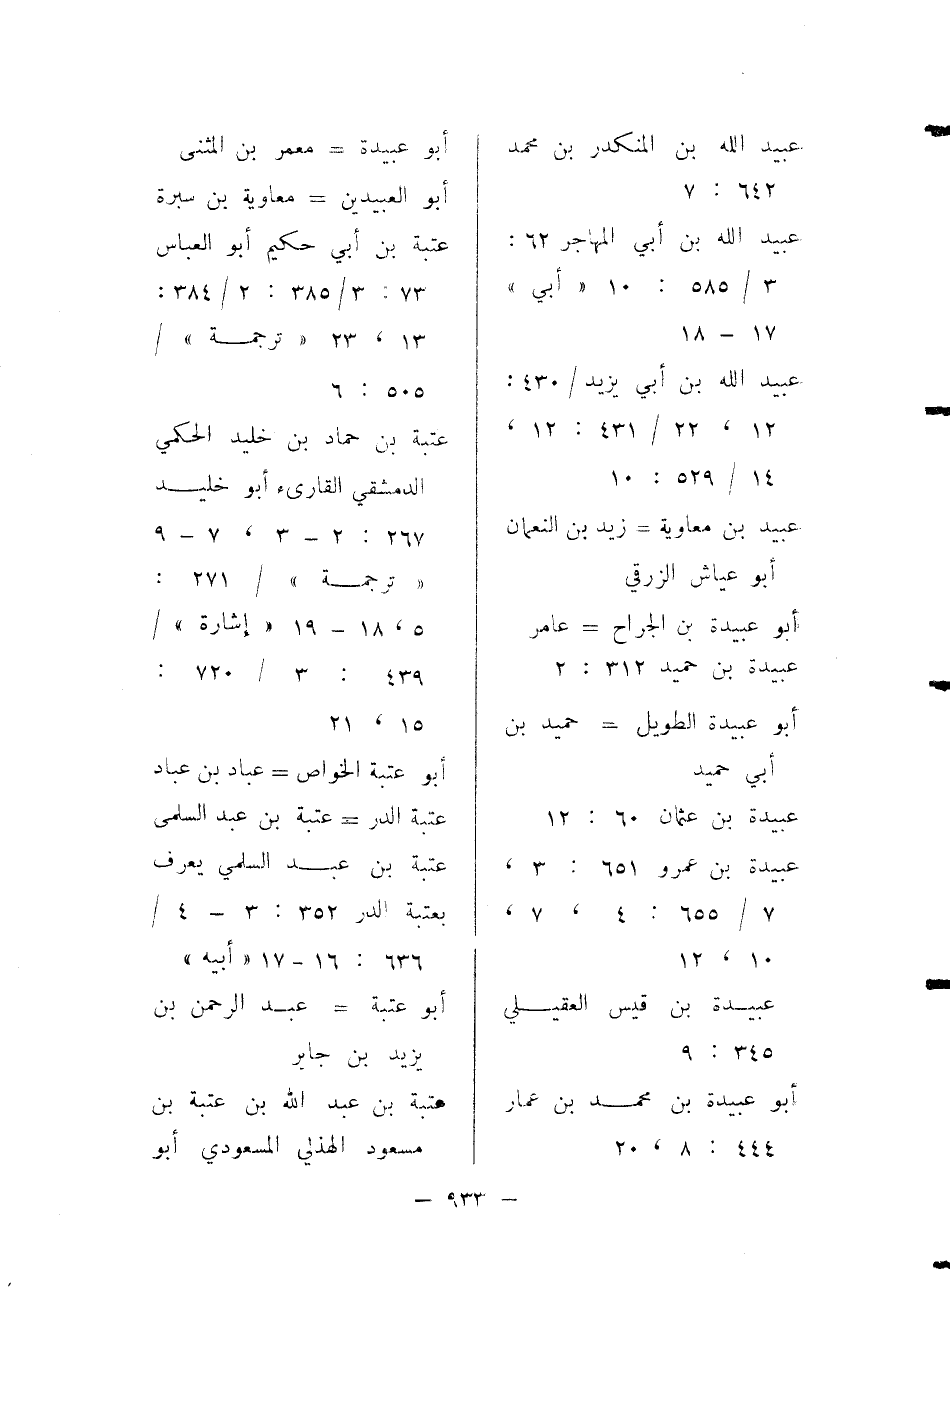 عبيد الله بن المنكدر بن محمد
٦٤٢ : ٧
عبيد الله بن أبي المهاجر ٦٢ :
٣ / ٥٨٥ : ١٠ « أبي »
١٧ – ١٨
عبيد الله بن أبي يزيد / ٤٣٠ :
١٢ ، ٢٢ / ٤٣١ : ١٢ ،
١٤ / ٥٢٩ : ١٠
عبيد بن معاوية = زيد بن النعمان
أبو عياش الزرقي
أبو عبيدة بن الجراح = عامر
عبيدة بن حميد ٣١٢ : ٢
أبو عبيدة الطويل = حميد بن
أبي حميد
عبيدة بن عثمان ٦٠ : ١٢
عبيدة بن عمرو ٦٥١ : ٣ ،
٧ / ٦٥٥ : ٤ ، ٧ ،
١٠ ، ١٢
عبيدة بن قيس العقيلي
٣٤٥ : ٩
أبو عبيدة بن محمد بن عمار
٤٤٤ : ٨ ، ٢٠
أبو عبيدة = معمر بن المثنى
أبو العبيدين = معاوية بن سبرة
عتبة بن أبي حكيم أبو العباس
٧٣ : ٣ / ٣٨٥ : ٢ / ٣٨٤ :
١٣ ، ٢٣ « ترجمة » /
٥٠٥ : ٦
عتبة بن حماد بن خليد الحكمي
الدمشقي القارىء أبو خليد
٢٦٧ : ٢ – ٣ ، ٧ – ٩
« ترجمة » / ٢٧١ :
٥ ، ١٨ – ١٩ « إشارة » /
٤٣٩ : ٣ / ٧٢٠ :
١٥ ، ٢١
أبو عتبة الخواص = عباد بن عباد
عتبة الدر = عتبة بن عبد السلمى
عتبة بن عبد السلمي يعرف
بعتبة الدر ٣٥٢ : ٣ – ٤ /
٦٣٦ : ١٦ – ١٧ « أبيه »
أبو عتبة = عبد الرحمن بن
يزيد بن جابر
عتبة بن عبد الله بن عتبة بن
مسعود الهذلي المسعودي أبو
– ٩٣٣ –